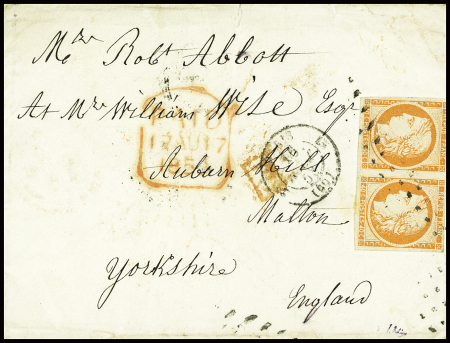 Mr Robt Abbott
At Mr William Wise Esqr
Auburn Hill
Malton
Yorkshire
England